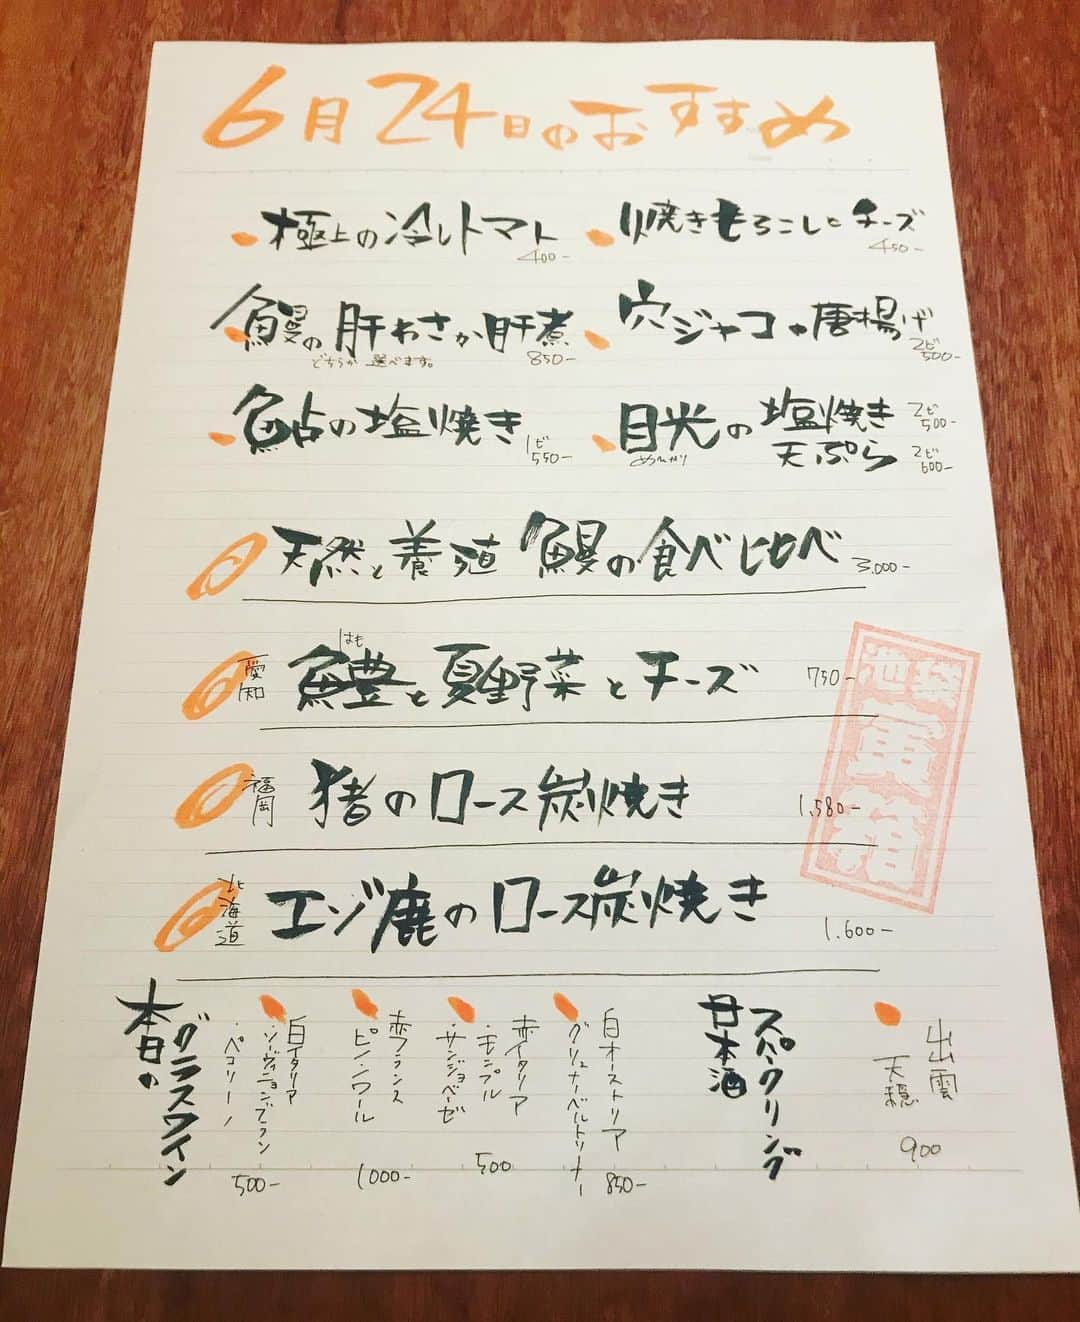 6月24日のおすすめ
極上の冷しトマト 400-
焼きもろこしとチーズ 450-
鰻の肝わさか肝煮 850-
どちらか選べます。
穴ジャコの唐揚げ 2ビ 500-
鮎の塩焼き 1ビ 550-
目光の塩焼き 2ビ 500-
めひかり
天ぷら 2ビ 600-
天然と養殖 鰻の食べ比べ 3.000-
はも
愛知 鱧と夏野菜とチーズ 750-
福岡 猪のロース炭焼き 1.580-
北海道 エゾ鹿のロース炭焼き 1.600-
池袋
本日の
グラスワイン
白イタリア
・ソーヴィニョンブラン
・ペコリーノ
500-
赤フランス
ピノ・ノワール
1000-
赤イタリア
・モンプル
・サンジョベーゼ
500
白オーストリア
グリュナーベルトリナー
850-
スパークリング
日本酒
出雲
天穏
900